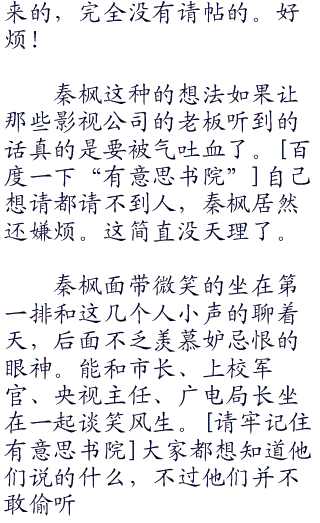 来的，完全没有请帖的。好
烦！
秦枫这种的想法如果让
那些影视公司的老板听到的
话真的是要被气吐血了。[百
度一下“有意思书院”]自己
想请都请不到人，秦枫居然
还嫌烦。这简直没天理了。
秦枫面带微笑的坐在第
一排和这几个人小声的聊着
天，后面不乏羡慕妒忌恨的
眼神。能和市长、上校军
官、央视主任、广电局长坐
在一起谈笑风生。[请牢记住
有意思书院]大家都想知道他
们说的什么，不过他们并不
敢偷听